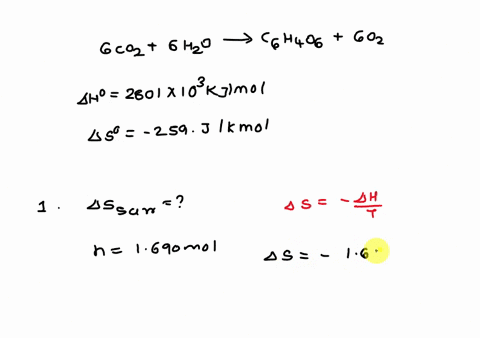 6CO2 + 6H2O ⟶ C6H4O6 + 6O2
ΔH⁰ = 2801 × 10³ KJ/mol
ΔS⁰ = -259. J/kmol
1. ΔSsurr = ? ΔS = - ΔH/T
n = 1.690mol ΔS = - 1.6